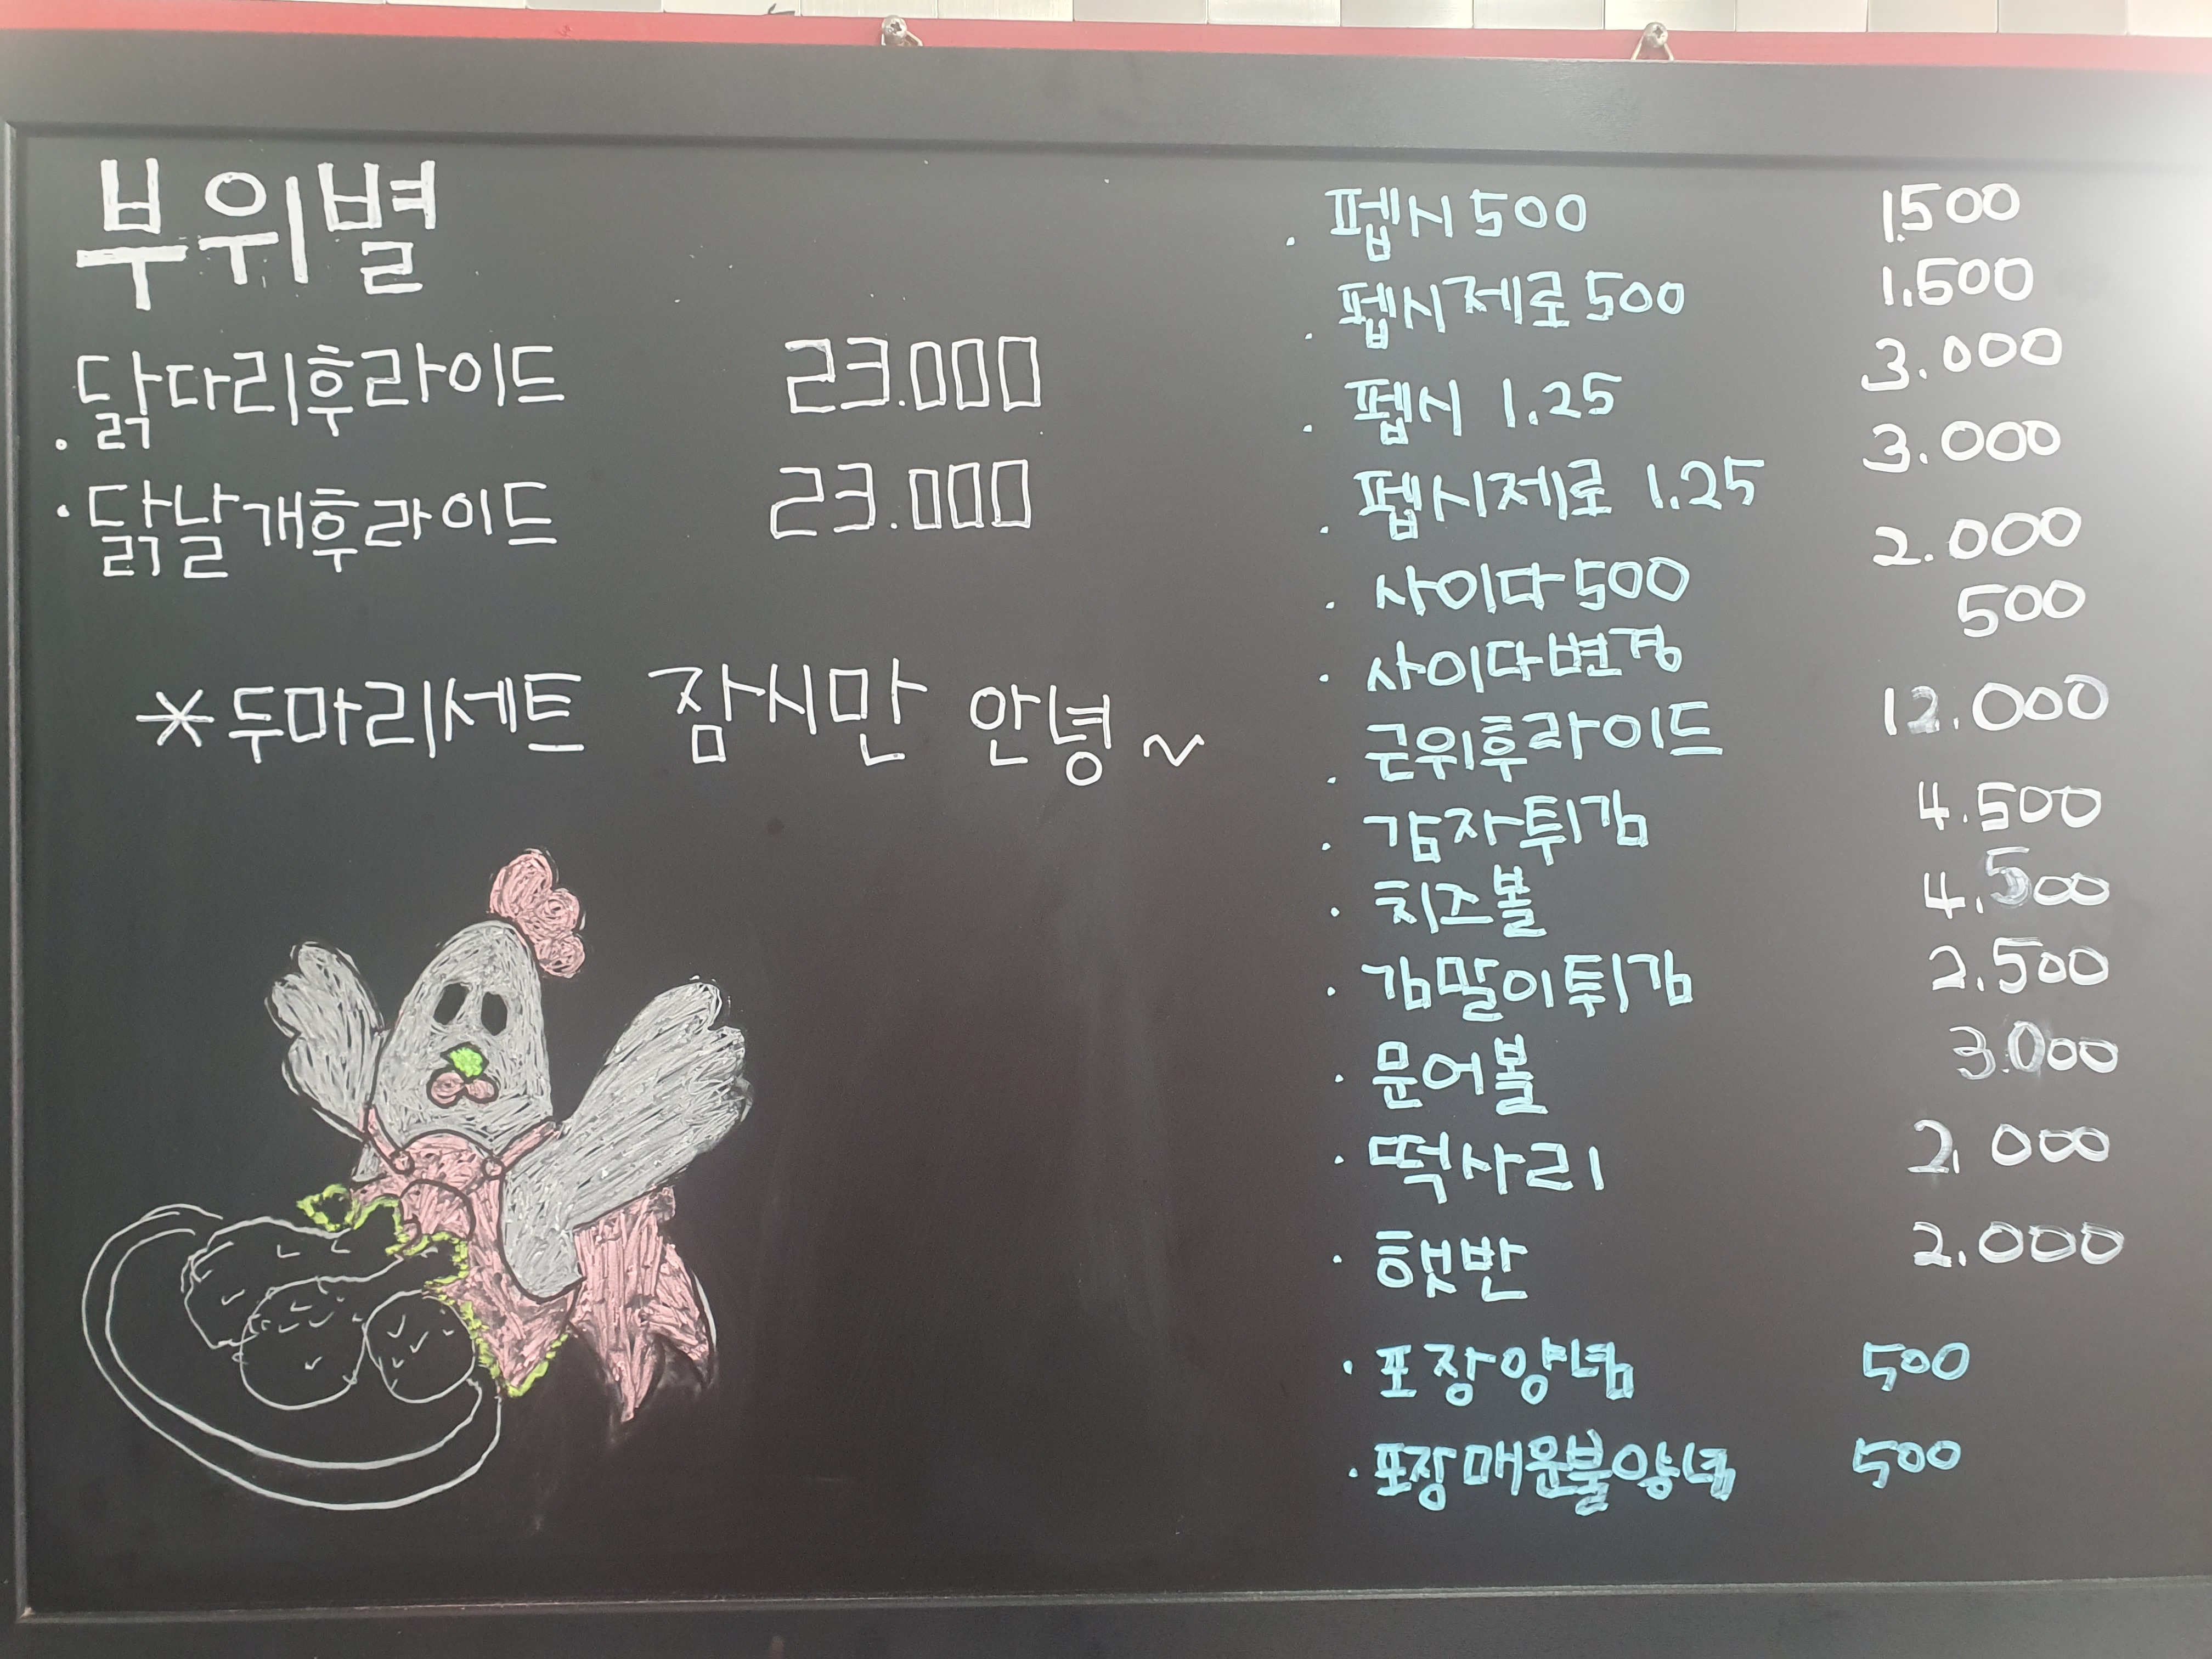 부위별
· 닭다리후라이드 23.000
· 닭날개후라이드 23.000
* 두마리세트 잠시만 안녕~
· 펩시 500 1.500
· 펩시제로 500 1.500
· 펩시 1.25 3.000
· 펩시제로 1.25 3.000
· 사이다 500 2.000
· 사이다변경 500
· 근위후라이드 12.000
· 감자튀김 4.500
· 치즈볼 4.500
· 김말이튀김 2.500
· 문어볼 3.000
· 떡사리 2.000
· 햇반 2.000
· 포장양념 500
· 포장매운불양념 500